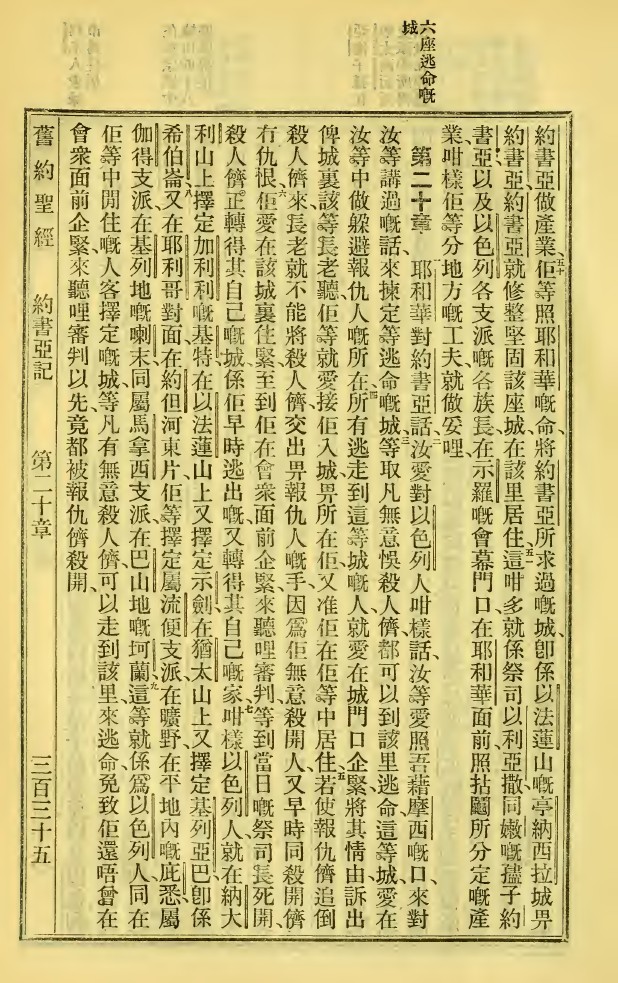 六座逃命嘅
城
約書亞做產業、佢等照耶和華嘅命將約書亞所求過嘅城、卽係以法蓮山嘅亭納西拉城畀
約書亞、約書亞就修整堅固該座城、在該里居住、這咁多就係祭司以利亞撒、同嫩嘅孻子約
書亞以及以色列各支派嘅各族長、在示羅嘅會幕門口、在耶和華面前、照拈鬮所分定嘅產
業、咁樣佢等分地方嘅工夫、就做妥哩
第二十章 耶和華對約書亞話、汝愛對以色列人咁樣話、汝等愛照吾藉摩西嘅口、來對
汝等講過嘅話、來揀定等逃命嘅城、等取凡無意悞殺人儕、都可以到該里逃命、這等城愛在
汝等中做躲避報仇人嘅所在、所有逃走到這等城嘅人、就愛在城門口企緊、將其情由訴出
俾城裏該等長老聽、佢等就愛接佢入城、畀所在佢、又准佢在佢等中居住、若使報仇儕追倒
殺人儕來、長老就不能將殺人儕交出畀報仇人嘅手、因爲佢無意殺開人、又早時同殺開儕
冇仇恨、佢愛在該城裏住緊、至到佢在會衆面前企緊來聽哩審判、等到當日嘅祭司長死開、
殺人儕正轉得其自己嘅城、係佢早時逃出嘅、又轉得其自己嘅家、咁樣以色列人、就在納大
利山上、擇定加利利嘅基特、在以法蓮山上、又擇定示劍、在猶太山上、又擇定基列亞巴、卽係
希伯崙、又在耶利哥對面、在約但河東片、佢等擇定屬流便支派、在曠野在平地內嘅庇悉、屬
伽得支派、在基列地嘅喇末、同屬馬拿西支派、在巴山地嘅坷蘭、這等就係爲以色列人、同在
佢等中閒住嘅人客、擇定嘅城、等凡有無意殺人儕、可以走到該里、來逃命、免致佢還唔曾在
會衆面前企緊、來聽哩審判以先、竟都被報仇儕殺開、
舊約聖經 約書亞記 第二十章 三百三十五